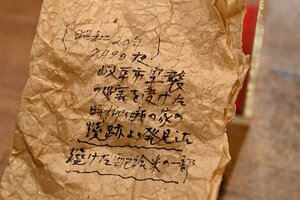 昭和20年
7月9日夜
岐阜市空襲
の災害を受けた
の家の
焼跡より発見した
焼けた配給米の一部